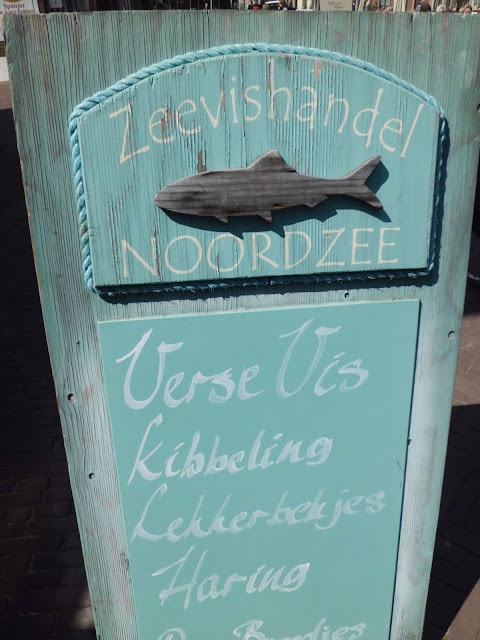 Zeevishandel
NOORDZEE
Verse Vis
Kibbeling
Lekkerbekjes
Haring
Broodjes